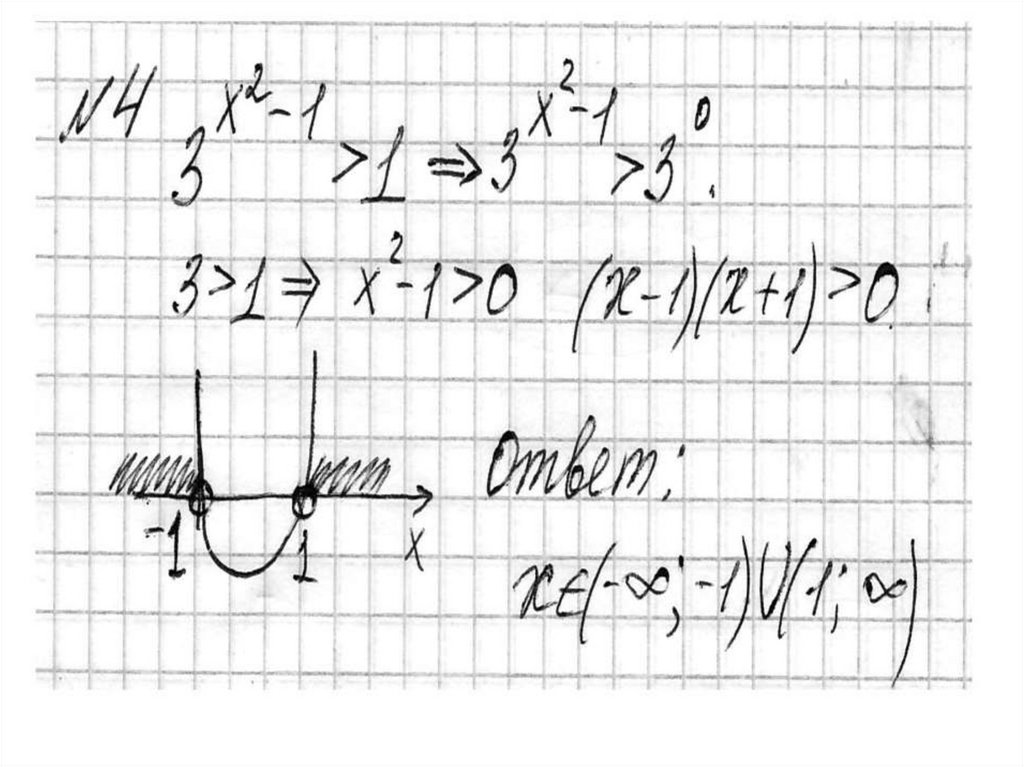 №4 3^{x²-1} > 1 ⇒ 3^{x²-1} > 3⁰.
3>1 ⇒ x²-1>0 (x-1)(x+1)>0.
-1 1 x
Ответ:
x∈(-∞;-1)∪(1;∞)